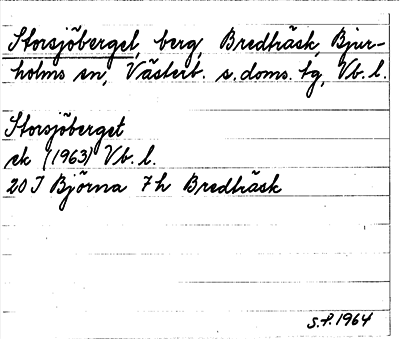 Storsjöberget, berg, Bredträsk, Bjur-
holms sn, Västerb. s. doms. tg, Vb. l.
Storsjöberget
ek (1963) Vb. l.
20 J Björna 7 h Bredträsk
S.F. 1964